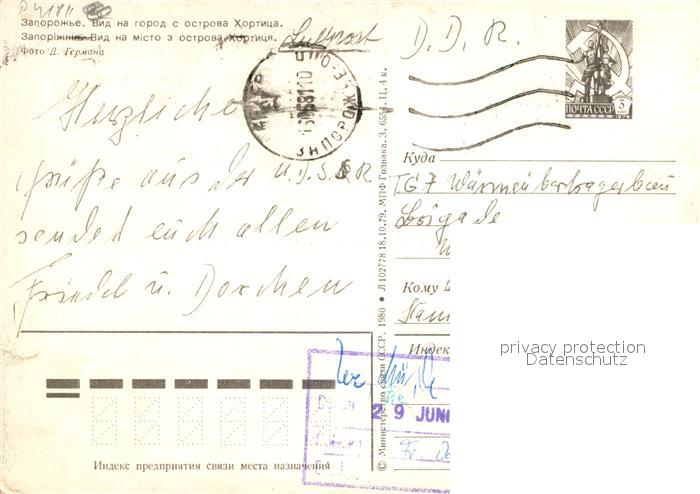 Запорожье. Вид на город с острова Хортица.
Запоріжжя. Вид на місто з острова Хортиця.
Фото Д. Германа
Luftpost
D. D. R.
ПОЧТА СССР
3
Herzliche
Grüße aus der U.d.S.S.R
sendet euch allen
Friedel u. Dorchen
© Министерство связи СССР, 1980 ● Л 102778 18.10.79. МПФ Гознака. З. 6554. Ц. 4 к.
Куда
TG 7 Wärmeübertragerbau
Brigade
Кому
Индек
privacy protection
Datenschutz
29 JUNI
Индекс предприятия связи места назначения